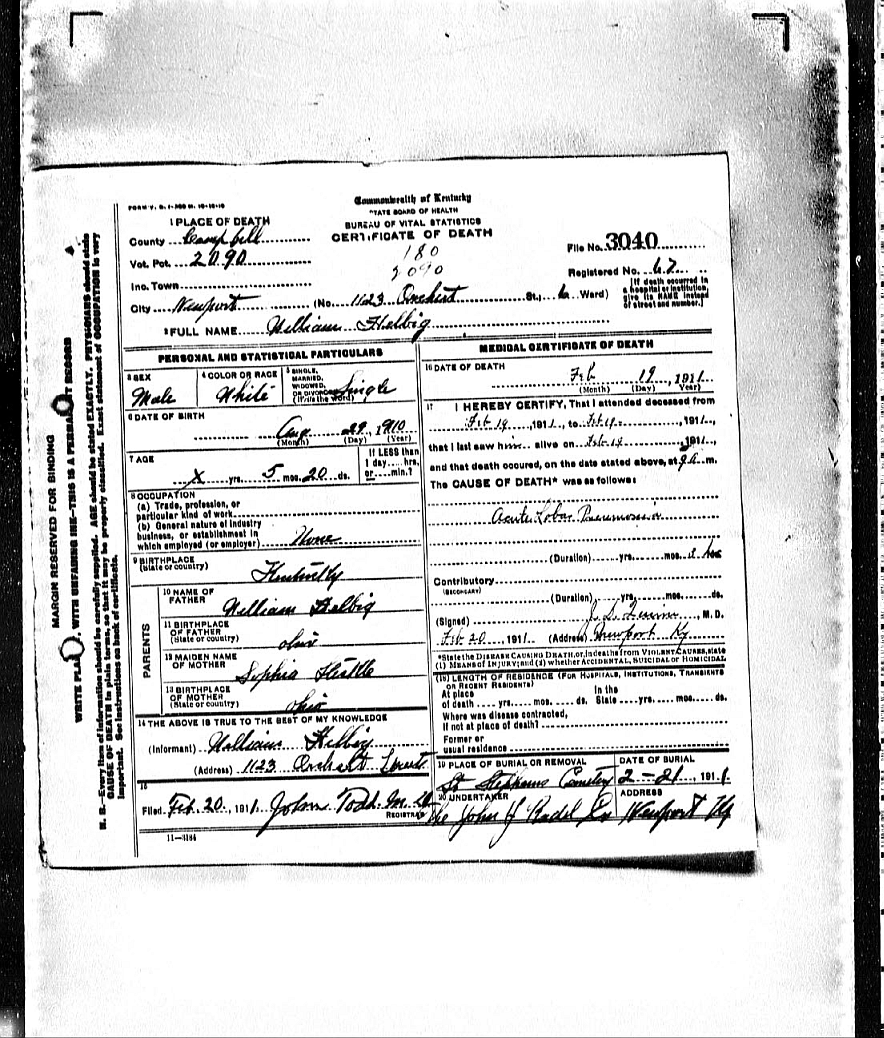 FORM V. S. 1-
Commonwealth of Kentucky
STATE BOARD OF HEALTH
BUREAU OF VITAL STATISTICS
CERTIFICATE OF DEATH
1 PLACE OF DEATH
County Campbell
Vot. Pct. 2090
180
2090
File No. 3040
Registered No. 67
Inc. Town
City Newport (No. 1123 St., 6 Ward)
[If death occurred in a hospital or institution, give its NAME instead of street and number.]
2 FULL NAME William Helbig
PERSONAL AND STATISTICAL PARTICULARS
3 SEX Male
4 COLOR OR RACE White
5 SINGLE, MARRIED, WIDOWED, OR DIVORCED (Write the word) Single
6 DATE OF BIRTH
Aug 29, 1910
(Month) (Day) (Year)
7 AGE
X yrs. 5 mos. 20 ds.
If LESS than 1 day.... hrs. or.....min.?
8 OCCUPATION
(a) Trade, profession, or
particular kind of work
(b) General nature of industry
business, or establishment in
which employed (or employer) None
9 BIRTHPLACE
(State or country) Kentucky
PARENTS
10 NAME OF FATHER William Helbig
11 BIRTHPLACE OF FATHER (State or country) ohio
12 MAIDEN NAME OF MOTHER Sophia
13 BIRTHPLACE OF MOTHER (State or country) ohio
14 THE ABOVE IS TRUE TO THE BEST OF MY KNOWLEDGE
(Informant) William Helbig
(Address) 1123 Street
15
Filed Feb. 20, 1911 John Todd M.D.
REGISTRAR
11-3184
MEDICAL CERTIFICATE OF DEATH
16 DATE OF DEATH
Feb 19, 1911
(Month) (Day) (Year)
17 I HEREBY CERTIFY, That I attended deceased from
Feb 19, 1911, to Feb 19, 1911,
that I last saw him alive on Feb 19, 1911,
and that death occured, on the date stated above, at m.
The CAUSE OF DEATH* was as follows:
Acute Lobar Pneumonia
(Duration) yrs. mos.
Contributory
(SECONDARY)
(Duration) yrs. mos. ds.
(Signed) , M.D.
Feb 20 1911 (Address) Newport Ky
*State the DISEASE CAUSING DEATH, or, in deaths from VIOLENT CAUSES, state
(1) MEANS OF INJURY; and (2) whether ACCIDENTAL, SUICIDAL or HOMICIDAL
(18) LENGTH OF RESIDENCE (FOR HOSPITALS, INSTITUTIONS, TRANSIENTS
OR RECENT RESIDENTS)
At place In the
of death .... yrs. mos. ds. State yrs. mos. ds.
Where was disease contracted,
if not at place of death?
Former or
usual residence
19 PLACE OF BURIAL OR REMOVAL DATE OF BURIAL
St Stephens Cemetery 2-21, 1911
20 UNDERTAKER ADDRESS
The John J Radel Co Newport Ky
MARGIN RESERVED FOR BINDING
WRITE PLAINLY, WITH UNFADING INK—THIS IS A PERMANENT RECORD
N. B.—Every item of information should be carefully supplied. AGE should be stated EXACTLY. PHYSICIANS should state
CAUSE OF DEATH in plain terms, so that it may be properly classified. Exact statement of OCCUPATION is very
important. See instructions on back of certificate.